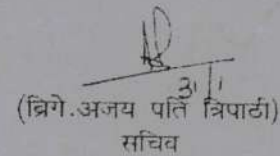 (ब्रिगे.अजय पति त्रिपाठी)
सचिव